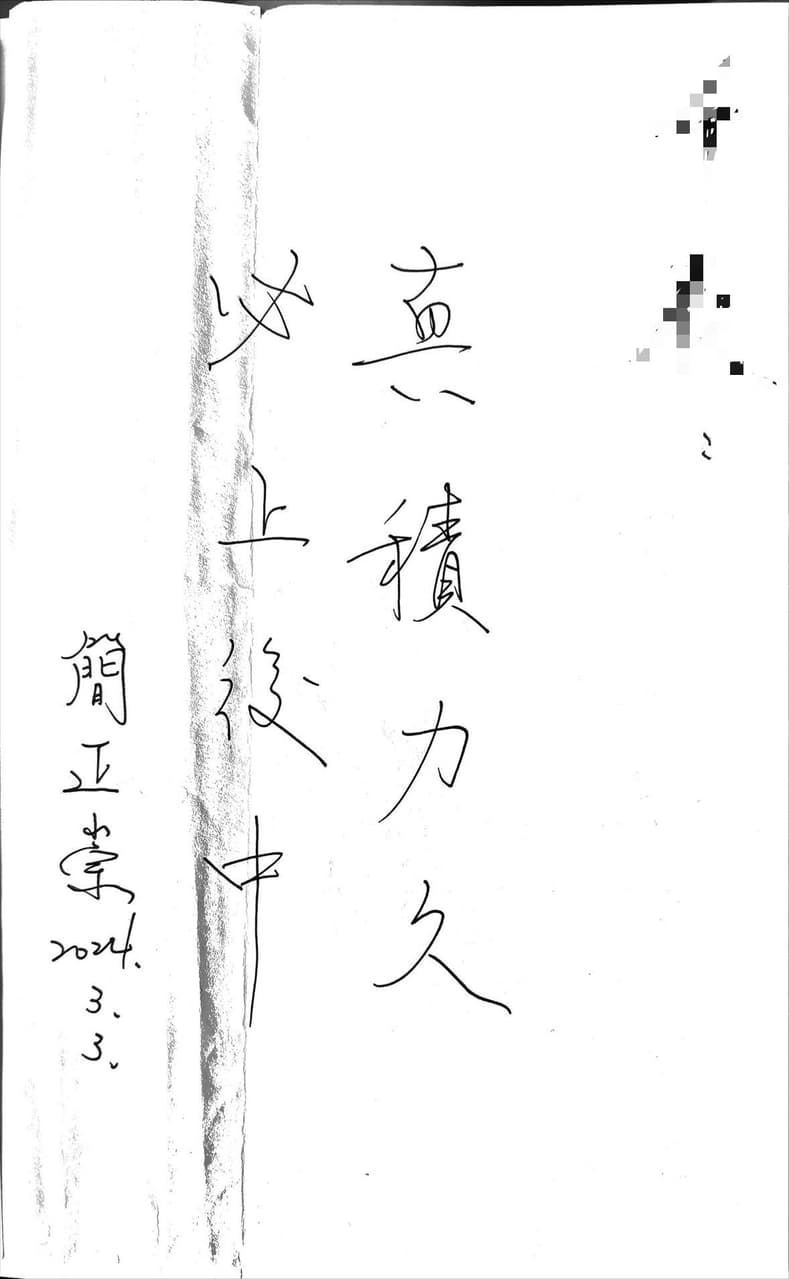 ：
真積力久
必上後中
簡正崇
2024.
3.
3.